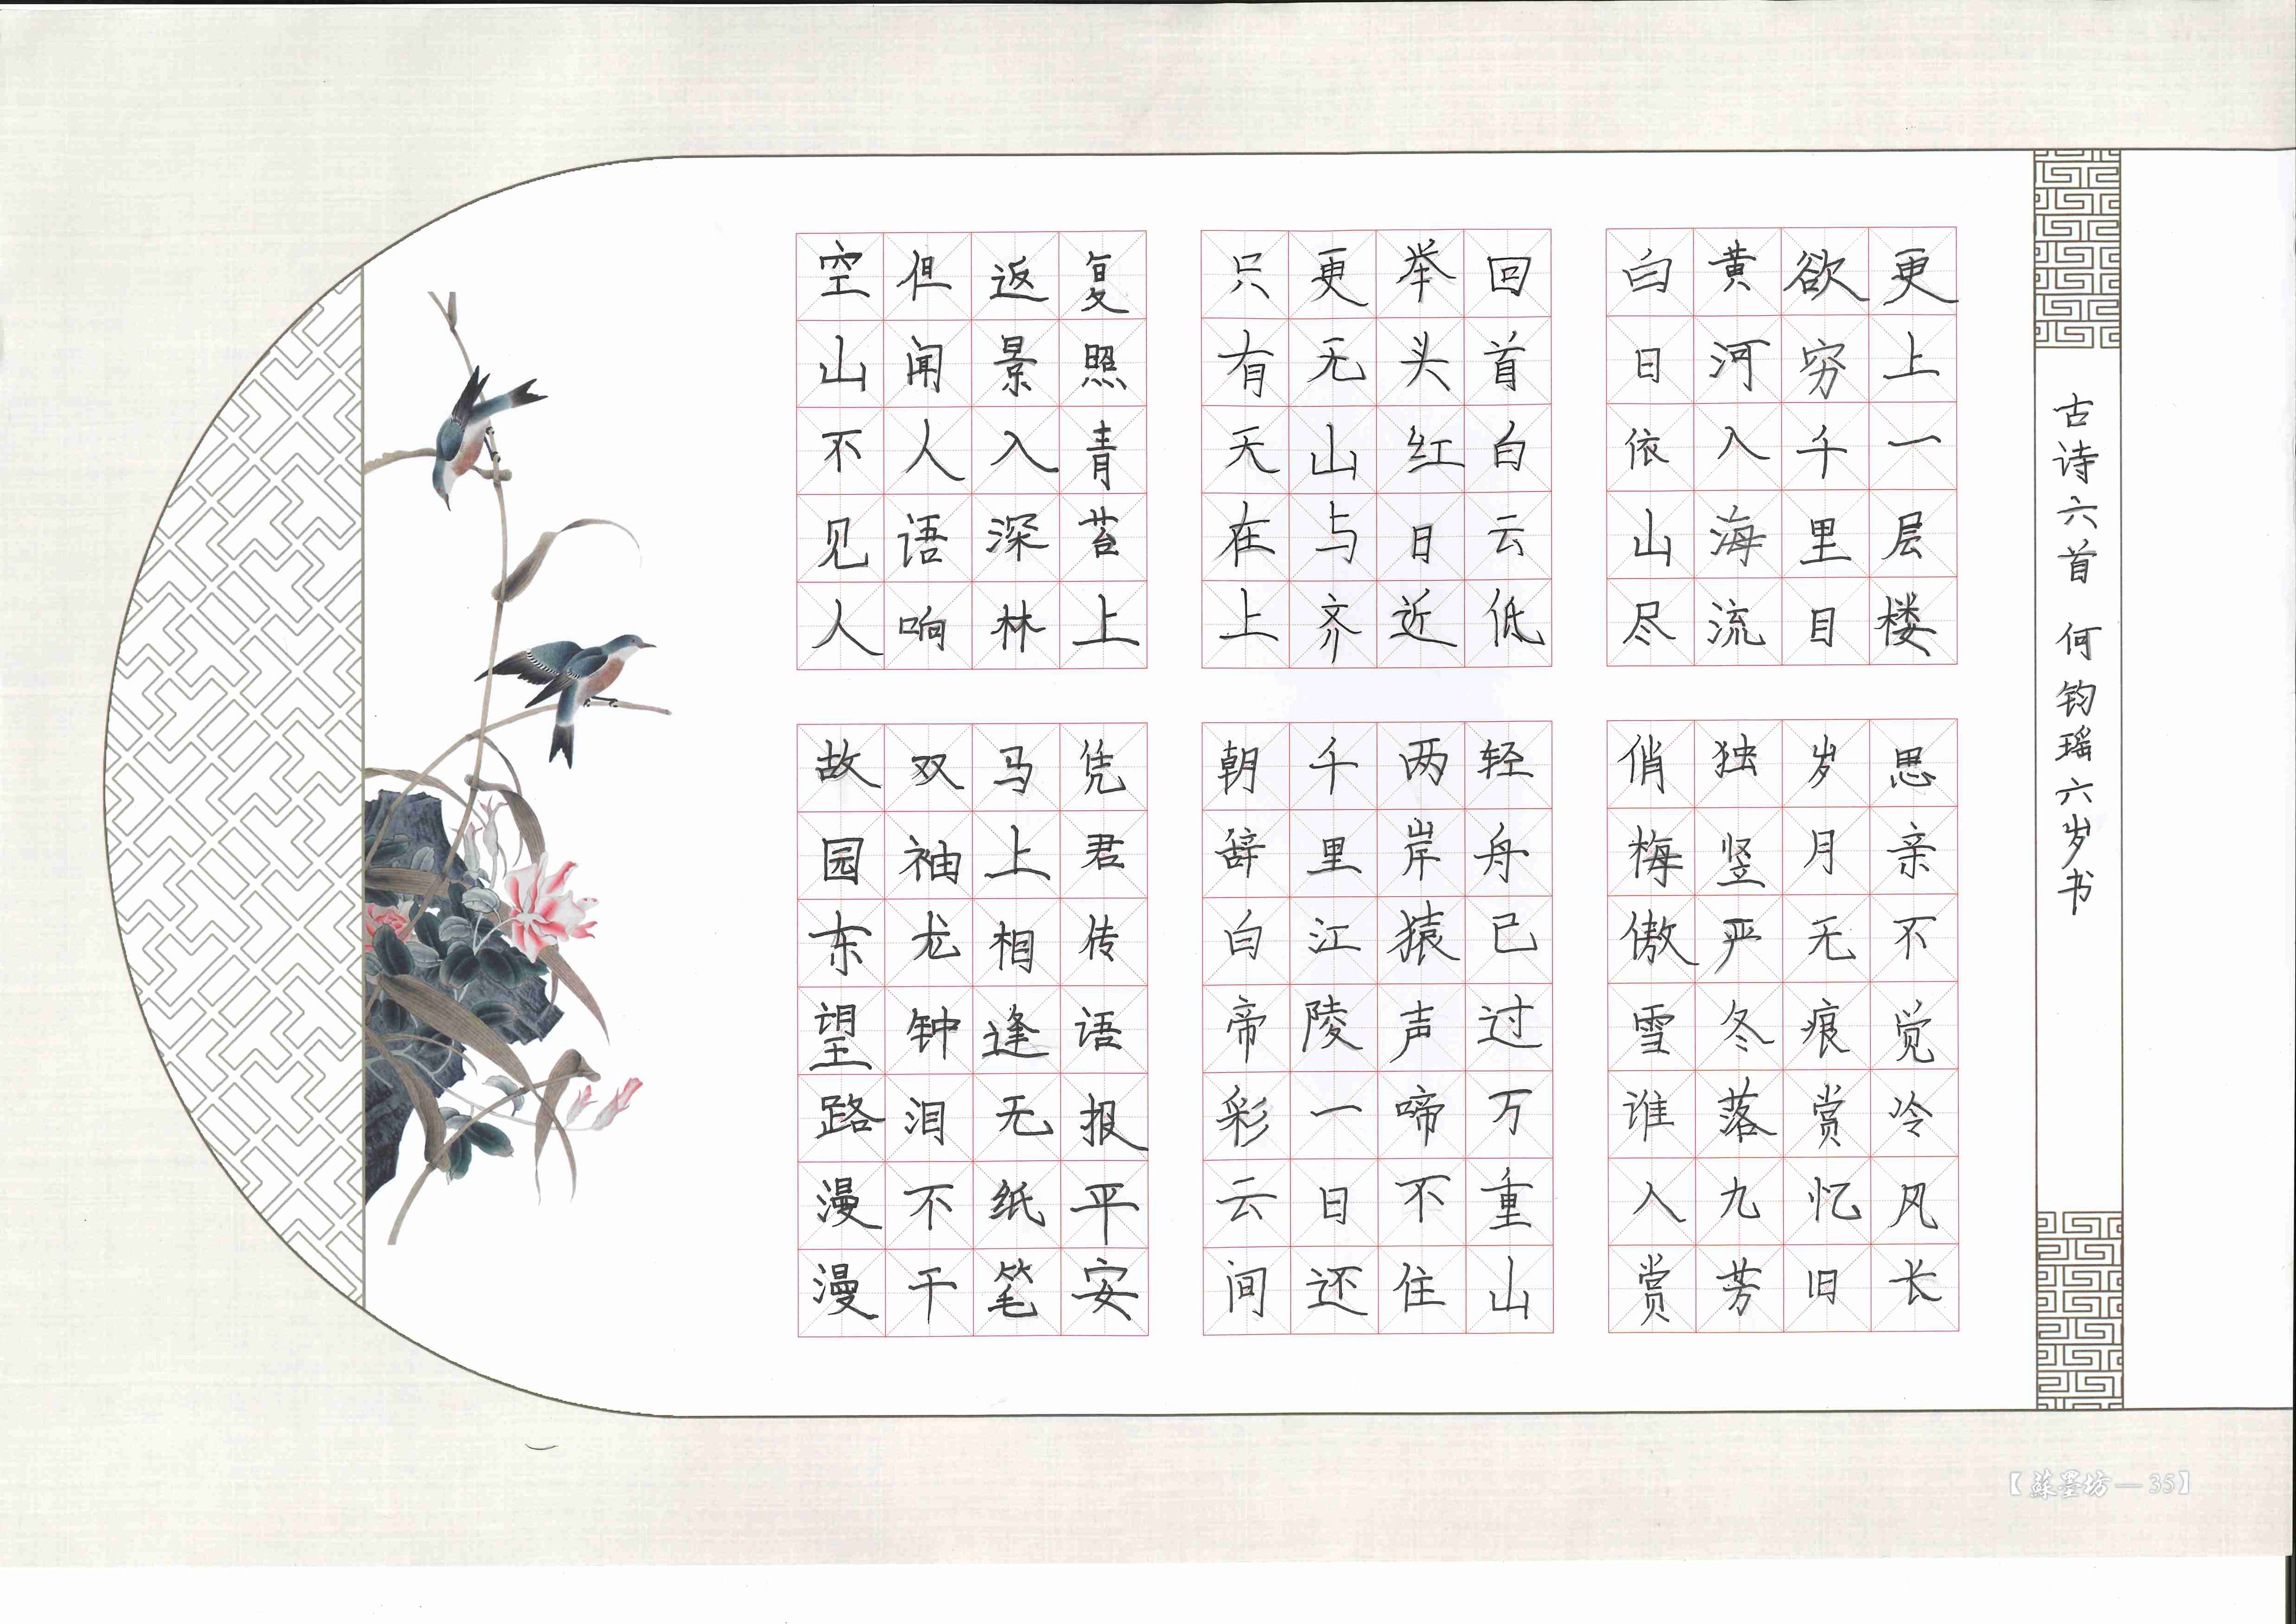 古诗六首 何钧瑶六岁书
白日依山尽
黄河入海流
欲穷千里目
更上一层楼
俏梅傲雪谁入赏
独竖严冬落九芳
岁月无痕赏忆旧
思亲不觉冷风长
只有天在上
更无山与齐
举头红日近
回首白云低
朝辞白帝彩云间
千里江陵一日还
两岸猿声啼不住
轻舟已过万重山
空山不见人
但闻人语响
返景入深林
复照青苔上
故园东望路漫漫
双袖龙钟泪不干
马上相逢无纸笔
凭君传语报平安
【蘇墨坊—35】